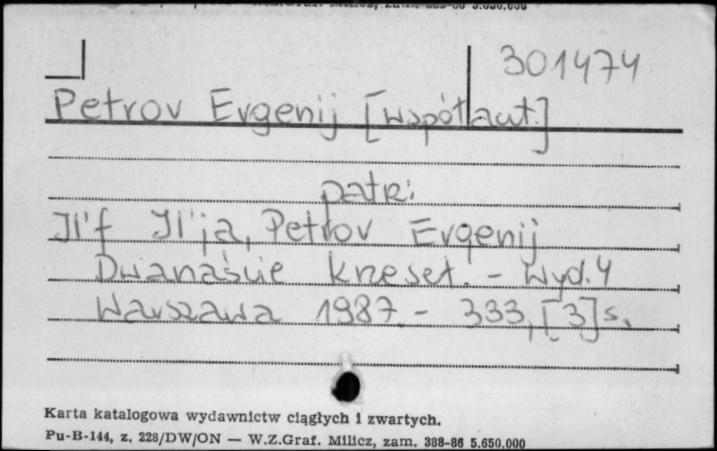 301474
Petrov Evgenij [współaut.]
patrz:
Il'f Il'ja, Petrov Evgenij
Dwanaście krzeseł. - Wyd. 4
Warszawa 1987. - 333, [3] s.
Karta katalogowa wydawnictw ciągłych i zwartych.
Pu-B-144, z. 228/DW/ON — W.Z.Graf. Milicz, zam. 388-86 5.650.000